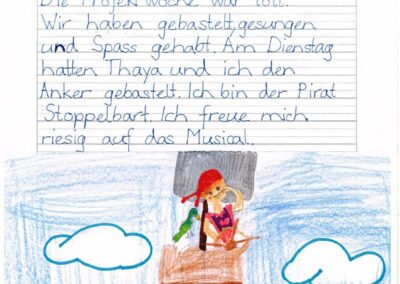 Die Projektwoche war toll.
Wir haben gebastelt, gesungen
und Spass gehabt. Am Dienstag
hatten Thaya und ich den
Anker gebastelt. Ich bin der Pirat
Stoppelbart. Ich freue mich
riesig auf das Musical.